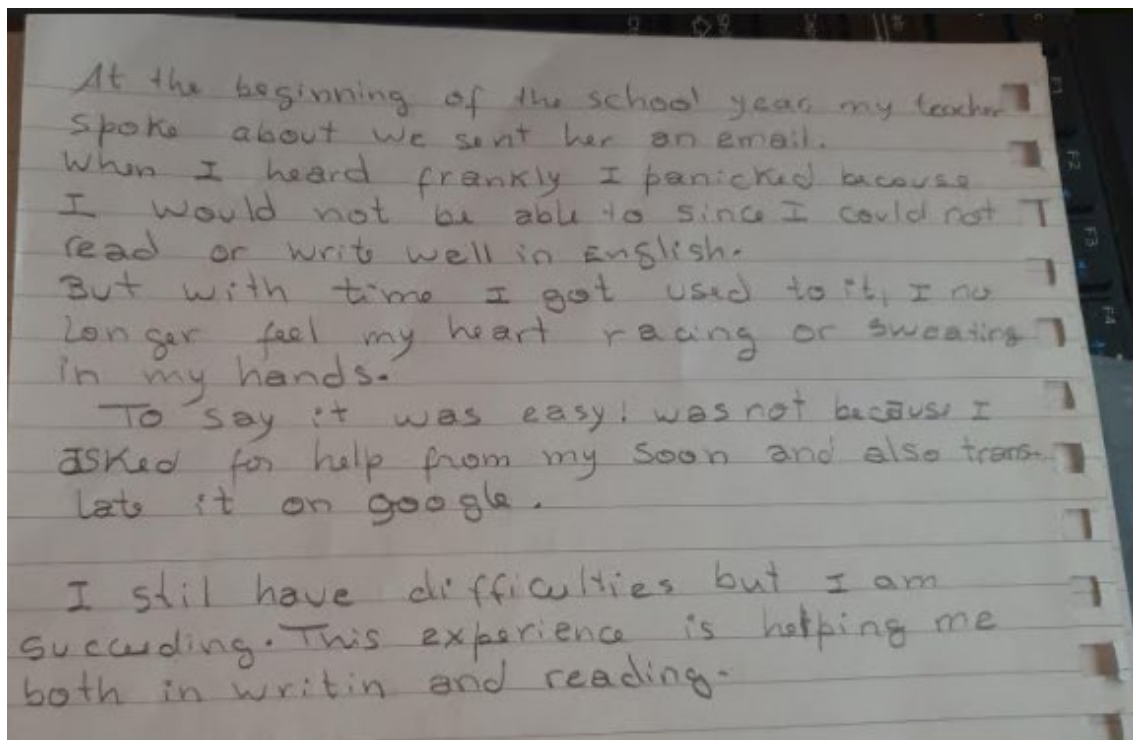 At the beginning of the school year my teacher
spoke about we sent her an email.
When I heard frankly I panicked because
I would not be able to since I could not
read or write well in English.
But with time I got used to it, I no
longer feel my heart racing or sweating
in my hands.
To say it was easy! was not because I
asked for help from my soon and also trans-
late it on google.
I stil have difficulties but I am
succeding. This experience is helping me
both in writin and reading.